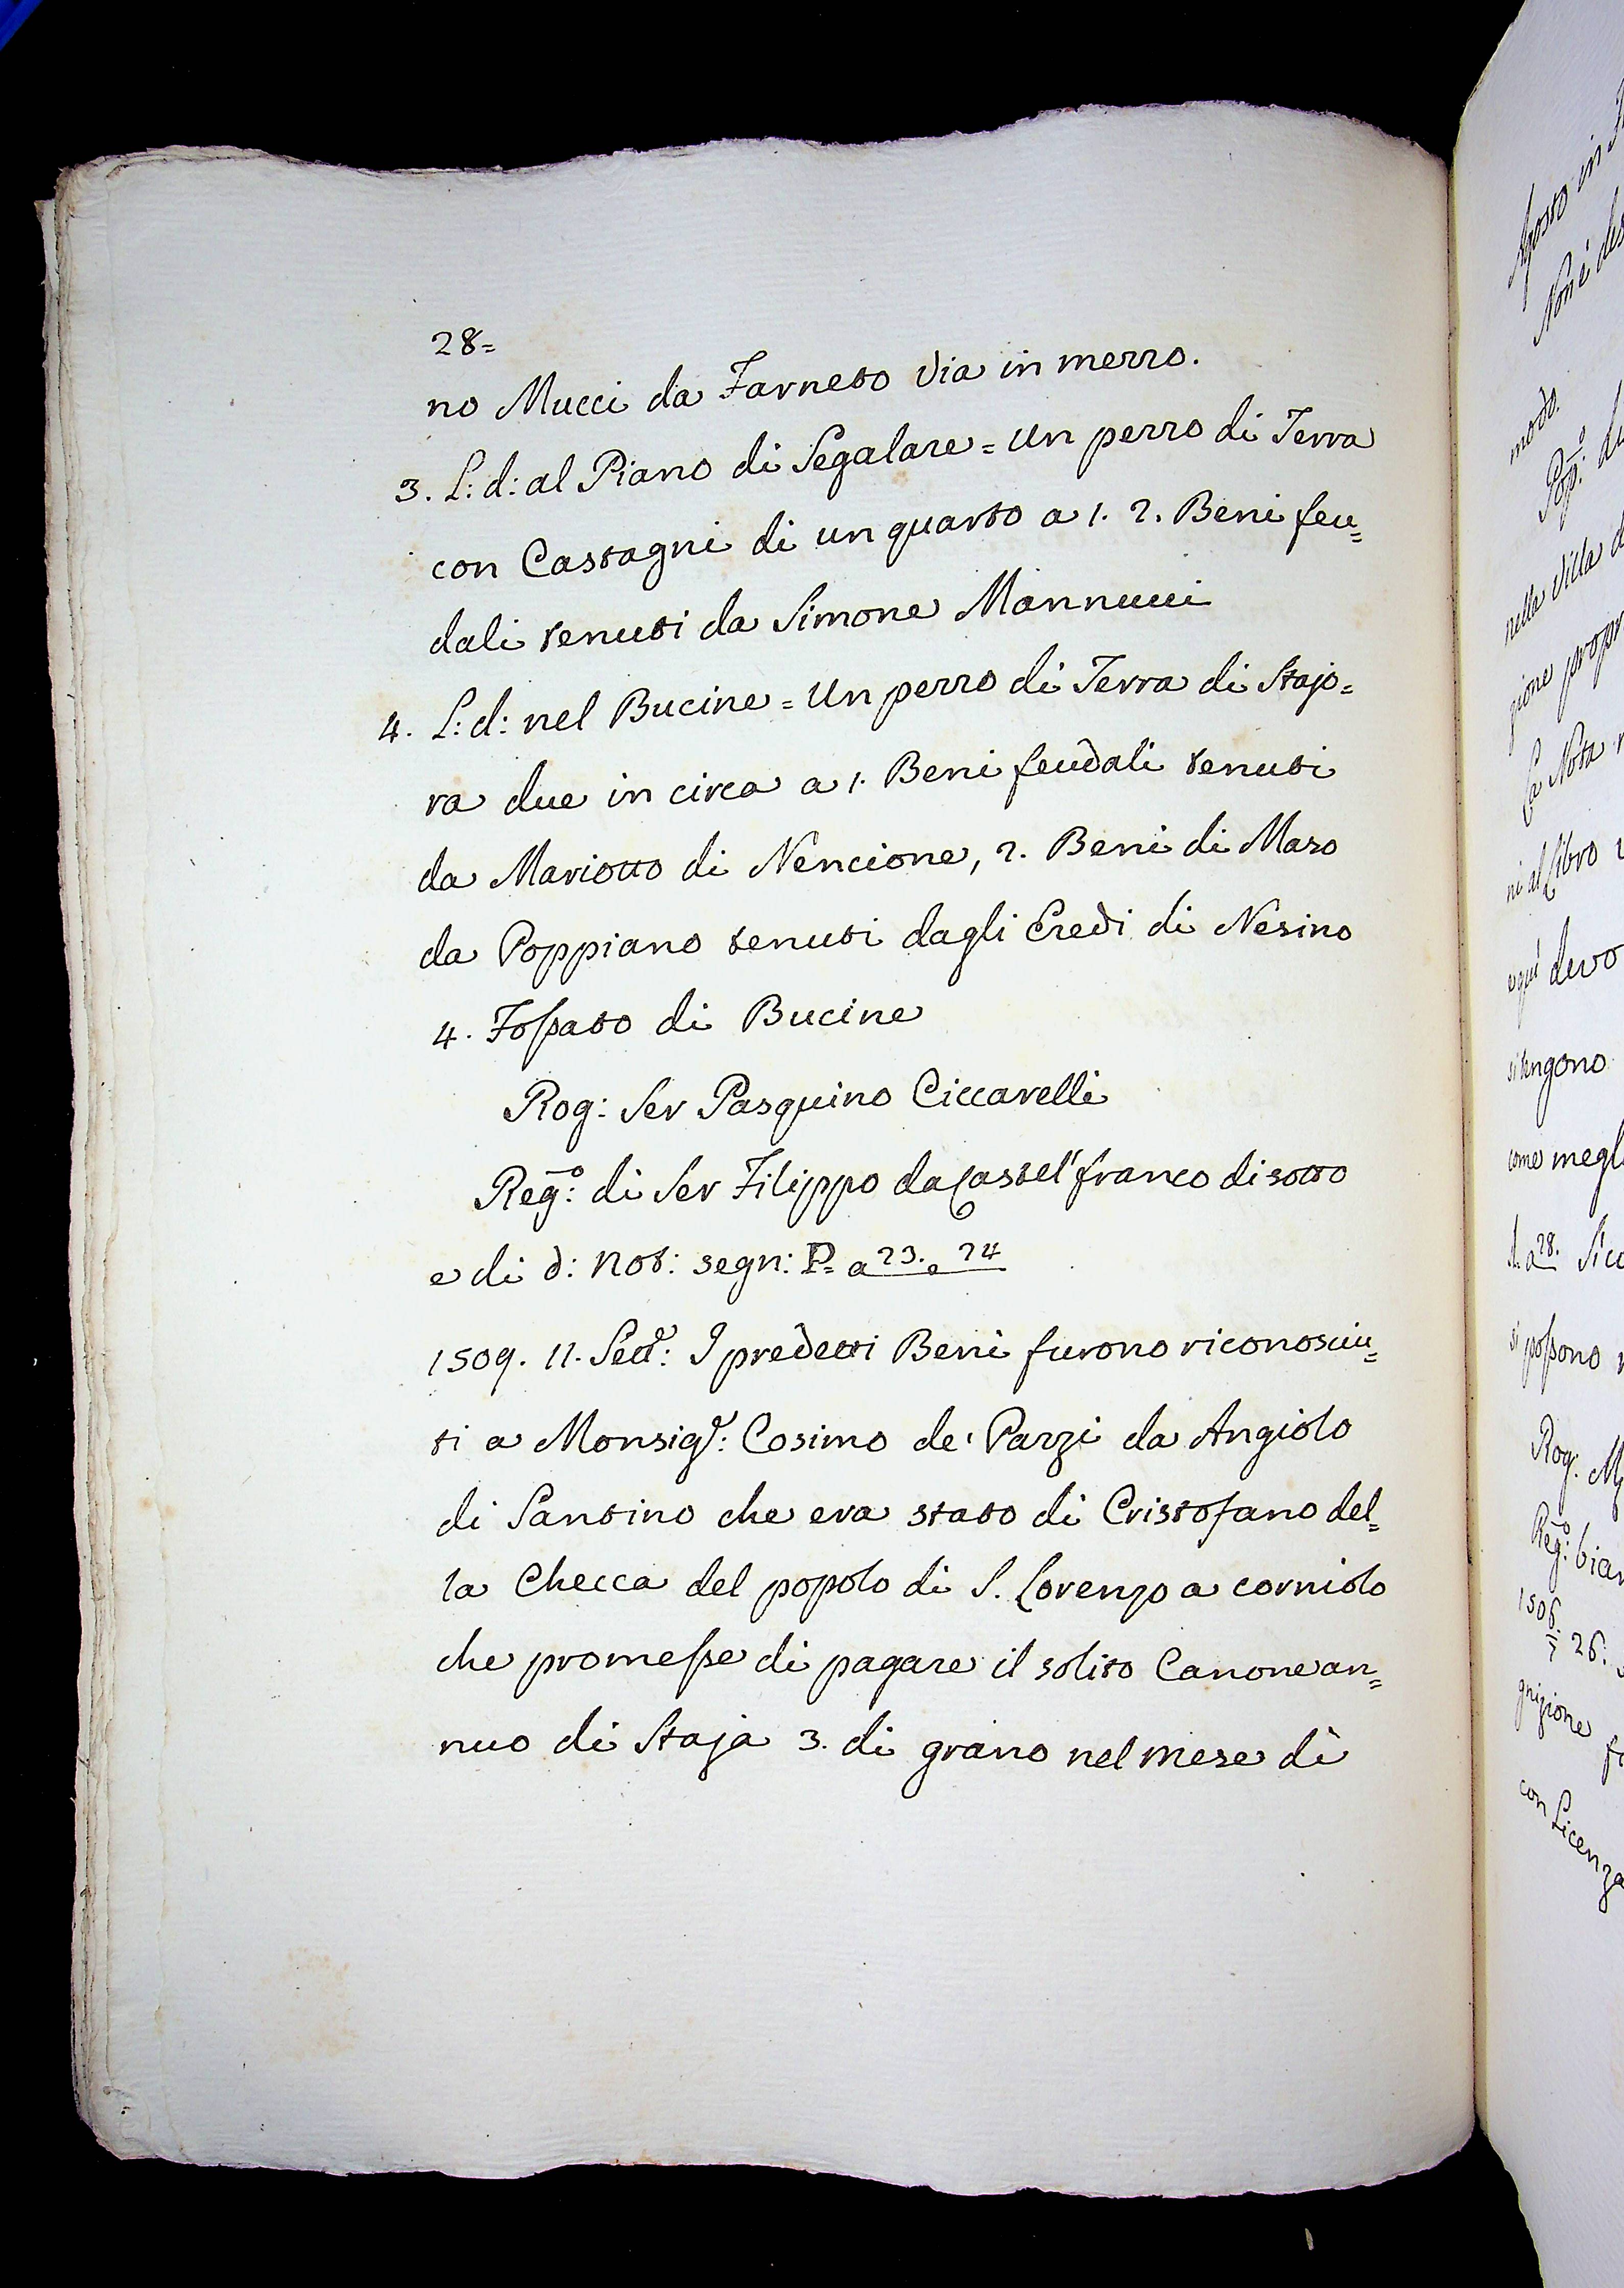 28=
no Mucci da Farneto via in mezzo.
3. L: d: al Piano di Segalare = Un pezzo di Terra
con Castagni di un quarto a 1. 2. Beni feu=
dali tenuti da Simone Mannucci
4. L: d: nel Bucine = Un pezzo di Terra di Stajo=
ra due in circa a 1. Beni feudali tenuti
da Mariotto di Nencione, 2. Beni di Maso
da Poppiano tenuti dagli Eredi di Nesino
4. Fossato di Bucine
Rog: Ser Pasquino Ciccarelli
Reg:o di Ser Filippo da Castel'franco di sotto
e di d: Not: segn: P= a 23. e 24
1509. 11. Sett:e I predetti Beni furono riconosciu=
ti a Monsig:r Cosimo de' Pazzi da Angiolo
di Santino che era stato di Cristofano del=
la Checca del popolo di S. Lorenzo a corniolo
che promesse di pagare il solito Canone an=
nuo di Staja 3. di grano nel mese di
Agosto in
Non è
modo.
Pop:o
nella Villa
gione
La Nota
ni al Libro
e qui devo
si tengono
come megl
28.
si possono
Rog:
Reg:o
1506
26:
gnizione
con Licenza